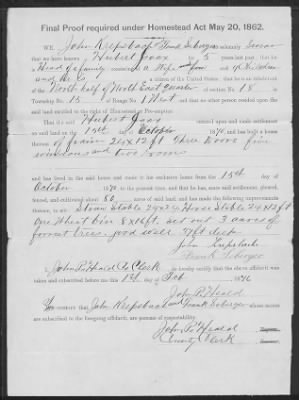 Final Proof required under Homestead Act May 20, 1862.
WE, John Krepsbach Frank Seberger do solemnly swear
that we have known Herbert Jaax for 5 years last past; that he
is Head of family consisting of Wife and
a citizen of the United States; that he is an inhabitant
of the North half of North East Quarter of section No. 18 in
Township No. 15 of Range No. 1 West and that no other person resided upon the
said land entitled to the right of Homestead or Pre-emption.
That the said Herbert Jaax entered upon and made settlement
on said land on the 15th day of October 1870, and has built a house thereon
of frame 24x12 ft Three Doors five
windows and two rooms
and has lived in the said house and made it his exclusive home from the 15th day of
October 1870 to the present time, and that he has, since said settlement, plowed,
fenced, and cultivated about 60 acres of said land, and has made the following improvements
thereon, to wit: Straw Stable 24x24 Horse Stable 24x12 ft
One Wheat bin 8x16 ft. set out 3 acres of
forrest trees. good well 47 ft deep
John Krepsbach
Frank Seberger
I, John R. Heald Co Clerk do hereby certify that the above affidavit was
taken and subscribed before me this 1st day of Feb 1876
John R. Heald
WE CERTIFY that John Krepsbach and Frank Seberger whose names
are subscribed to the foregoing affidavit, are persons of respectability.
John R. Heald
County Clerk